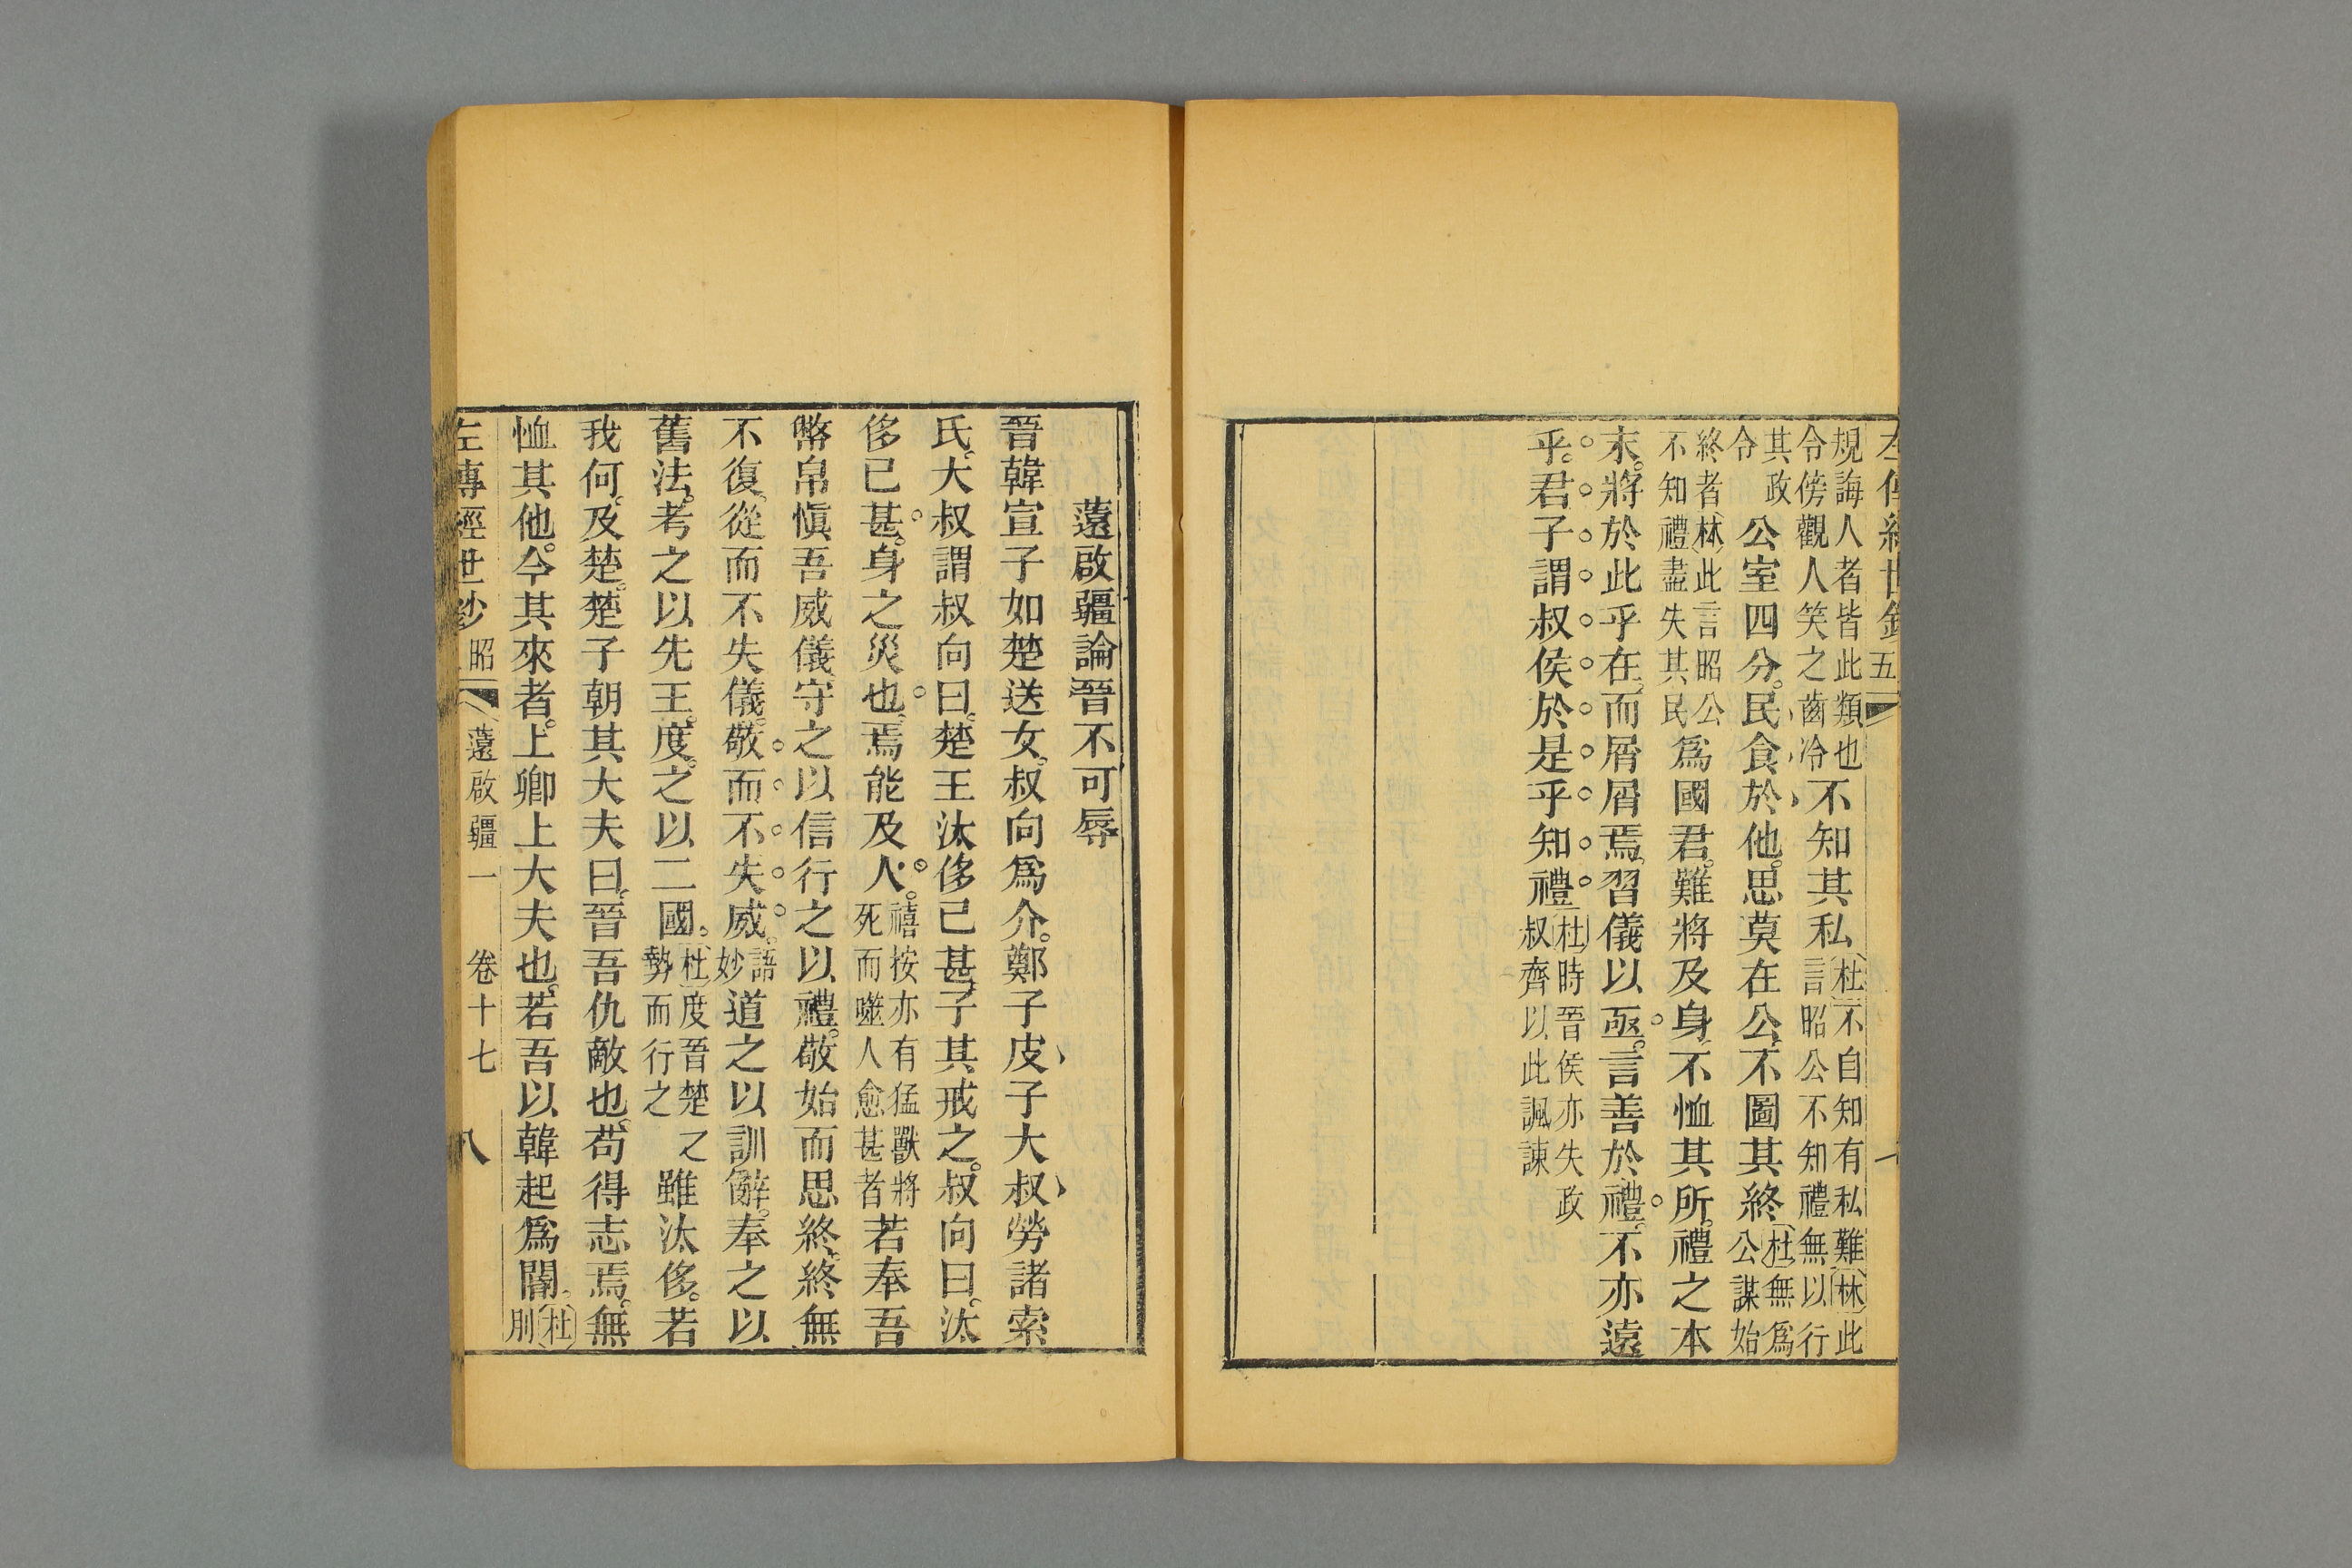 規誨人者皆此類也
令傍觀人笑之齒冷
不知其私
杜不自知有私難林此
言昭公不知禮無以行
其政
令
公室四分民食於他思莫在公不圖其終
杜無為
公謀始
終者林此言昭公
不知禮盡失其民
為國君難將及身不恤其所禮之本
末將於此乎在而屑屑焉習儀以亟言善於禮不亦遠
乎君子謂叔侯於是乎知禮
杜時晉侯亦失政
叔齊以此諷諫
薳啟疆論晉不可辱
晉韓宣子如楚送女叔向為介鄭子皮子大叔勞諸索
氏大叔謂叔向曰楚王汰侈已甚子其戒之叔向曰汰
侈已甚身之災也焉能及人
禧按亦有猛獸將
死而噬人愈甚者
若奉吾
幣帛慎吾威儀守之以信行之以禮敬始而思終終無
不復從而不失儀敬而不失威
語
妙
道之以訓辭奉之以
舊法考之以先王度之以二國
杜度晉楚之
勢而行之
雖汰侈若
我何及楚楚子朝其大夫曰晉吾仇敵也苟得志焉無
恤其他今其來者上卿上大夫也若吾以韓起為閽
杜
刖
左傳經世鈔 昭 薳啟疆一 卷十七 八